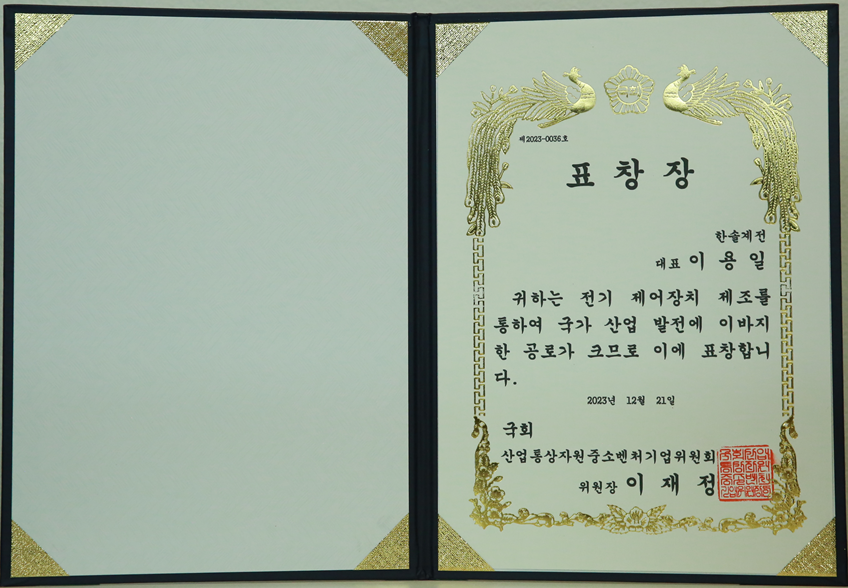 제2023-0036호
표 창 장
한솔계전
대표 이 용 일
귀하는 전기 제어장치 제조를
통하여 국가 산업 발전에 이바지
한 공로가 크므로 이에 표창합니
다.
2023년 12월 21일
국회
산업통상자원중소벤처기업위원회
위원장 이 재 정